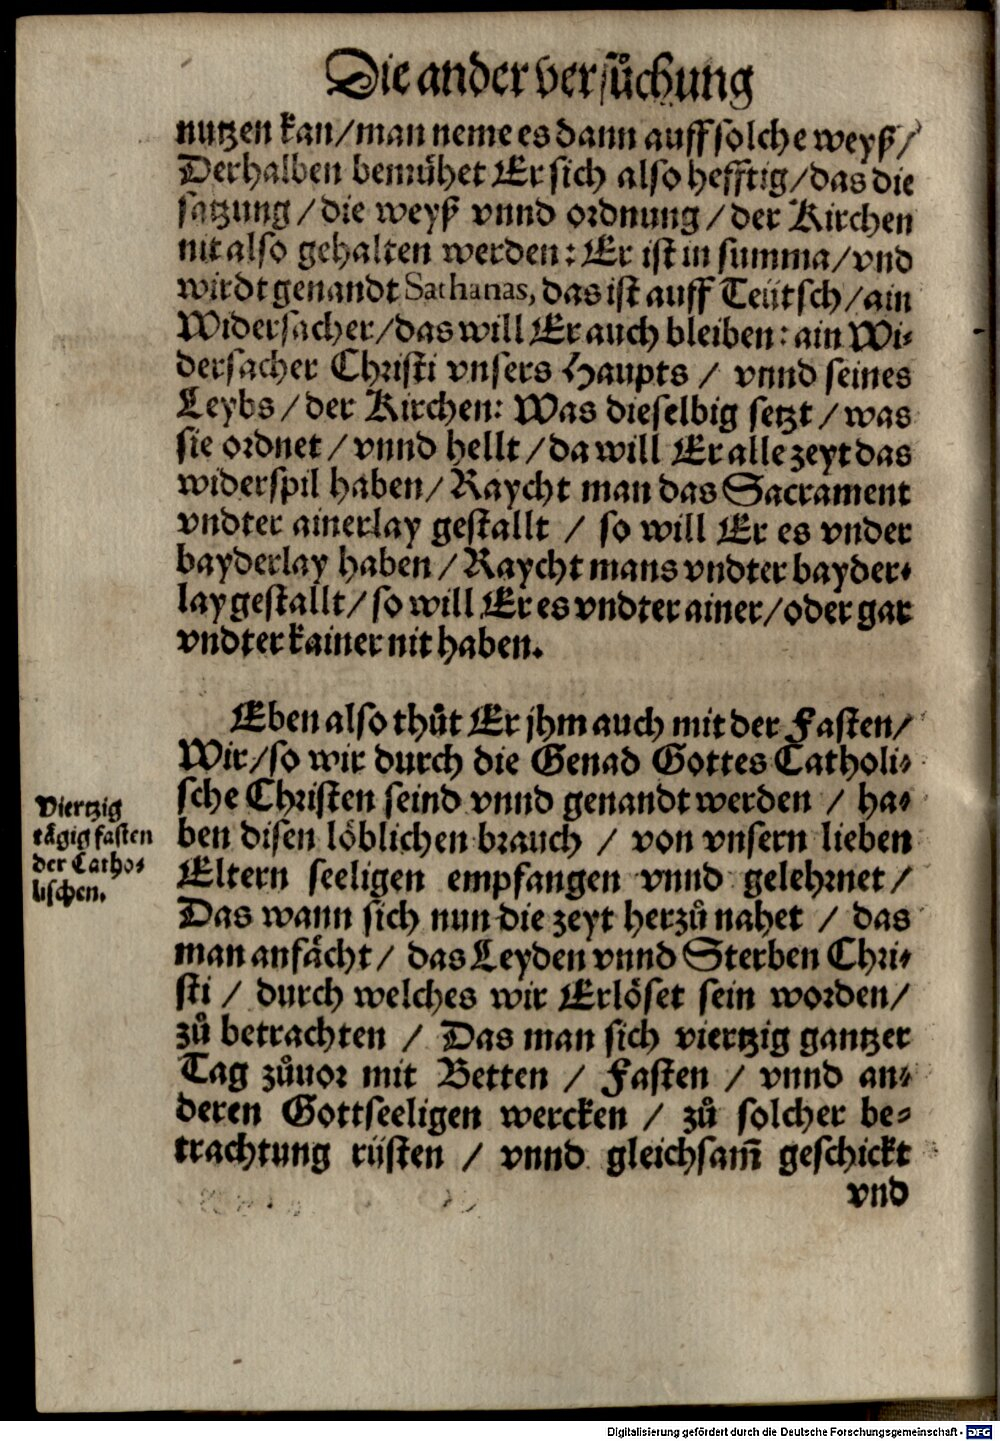 Die ander versuͦchung
nutzen kan/man neme es dann auff solche weyß/
Derhalben bemühet Er sich also hefftig/das die
satzung/die weyß vnnd ordnung/der Kirchen
nit also gehalten werden: Er ist in summa/vnd
wirdt genandt Sathanas, das ist auff Teütsch/ain
Widersacher/das will Er auch bleiben: ain Wi-
dersacher Christi vnsers Haupts / vnnd seines
Leybs/der Kirchen: Was dieselbig setzt/was
sie ordnet/vnnd hellt/da will Er alle zeyt das
widerspil haben/Raycht man das Sacrament
vndter ainerlay gestallt / so will Er es vnder
bayderlay haben/Raycht mans vndter bayder-
lay gestallt/so will Er es vndter ainer/oder gar
vndter kainer nit haben.
Eben also thuͦt Er jhm auch mit der Fasten/
Wir/so wir durch die Genad Gottes Catholi-
sche Christen seind vnnd genandt werden / ha-
ben disen löblichen brauch / von vnsern lieben
Eltern seeligen empfangen vnnd gelehrnet/
Das wann sich nun die zeyt herzuͦ nahet / das
man anfächt/ das Leyden vnnd Sterben Chri-
sti / durch welches wir Erlöset sein worden/
zuͦ betrachten / Das man sich viertzig gantzer
Tag zuͦuor mit Betten / Fasten / vnnd an-
deren Gottseeligen wercken / zuͦ solcher be-
trachtung rüsten / vnnd gleichsam̃ geschickt
vnd
Viertzig
tägig fasten
der Catho-
lischen.
Digitalisierung gefördert durch die Deutsche Forschungsgemeinschaft - DFG